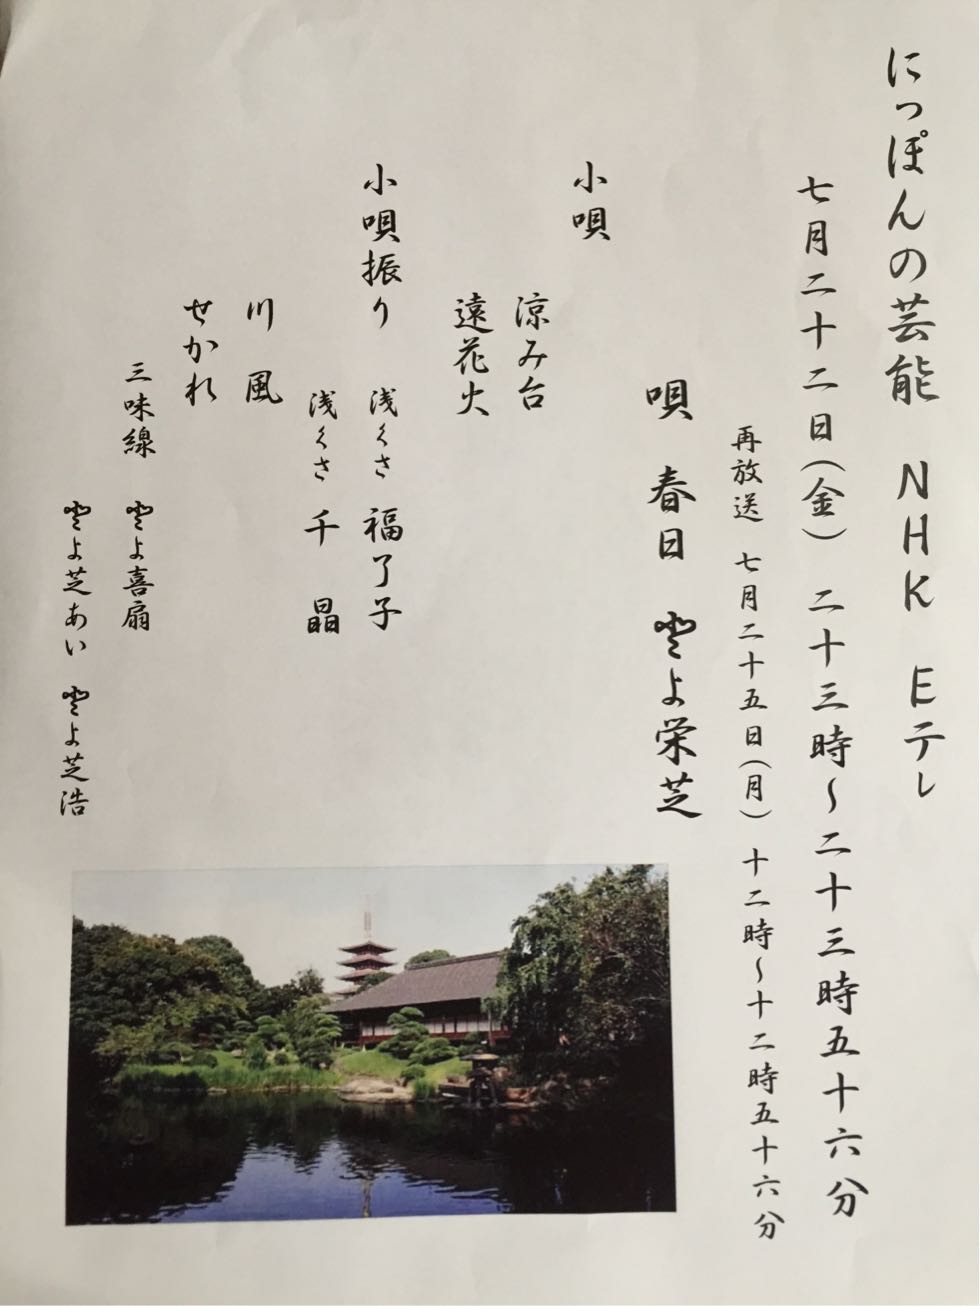 にっぽんの芸能 NHK Eテレ
七月二十二日(金) 二十三時〜二十三時五十六分
再放送 七月二十五日(月) 十二時〜十二時五十六分
唄 春日 とよ栄芝
小唄
涼み台
遠花火
小唄振り 浅くさ 福了子
浅くさ 千晶
川風
せかれ
三味線 とよ喜扇
とよ芝あい とよ芝浩